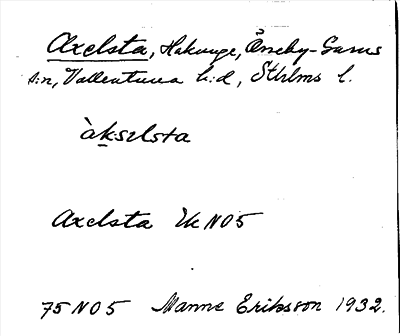 Axelsta, Hakunge, Össeby-Garns
s:n, Vallentuna h:d, Sthlms l.
àkselsta
Axelsta Ek NO5
75 NO5 Manne Eriksson 1932.